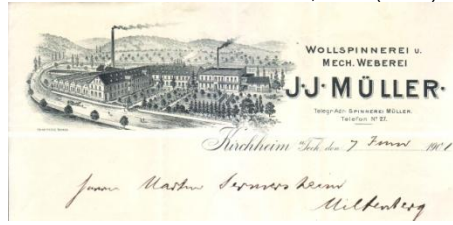 WOLLSPINNEREI U.
MECH. WEBEREI
J·J·MÜLLER·
Telegr.-Adr. SPINNEREI MÜLLER.
Telefon Nº 27.
Kirchheim u/Teck den 7 1901
Herrn Martin
Miltenberg